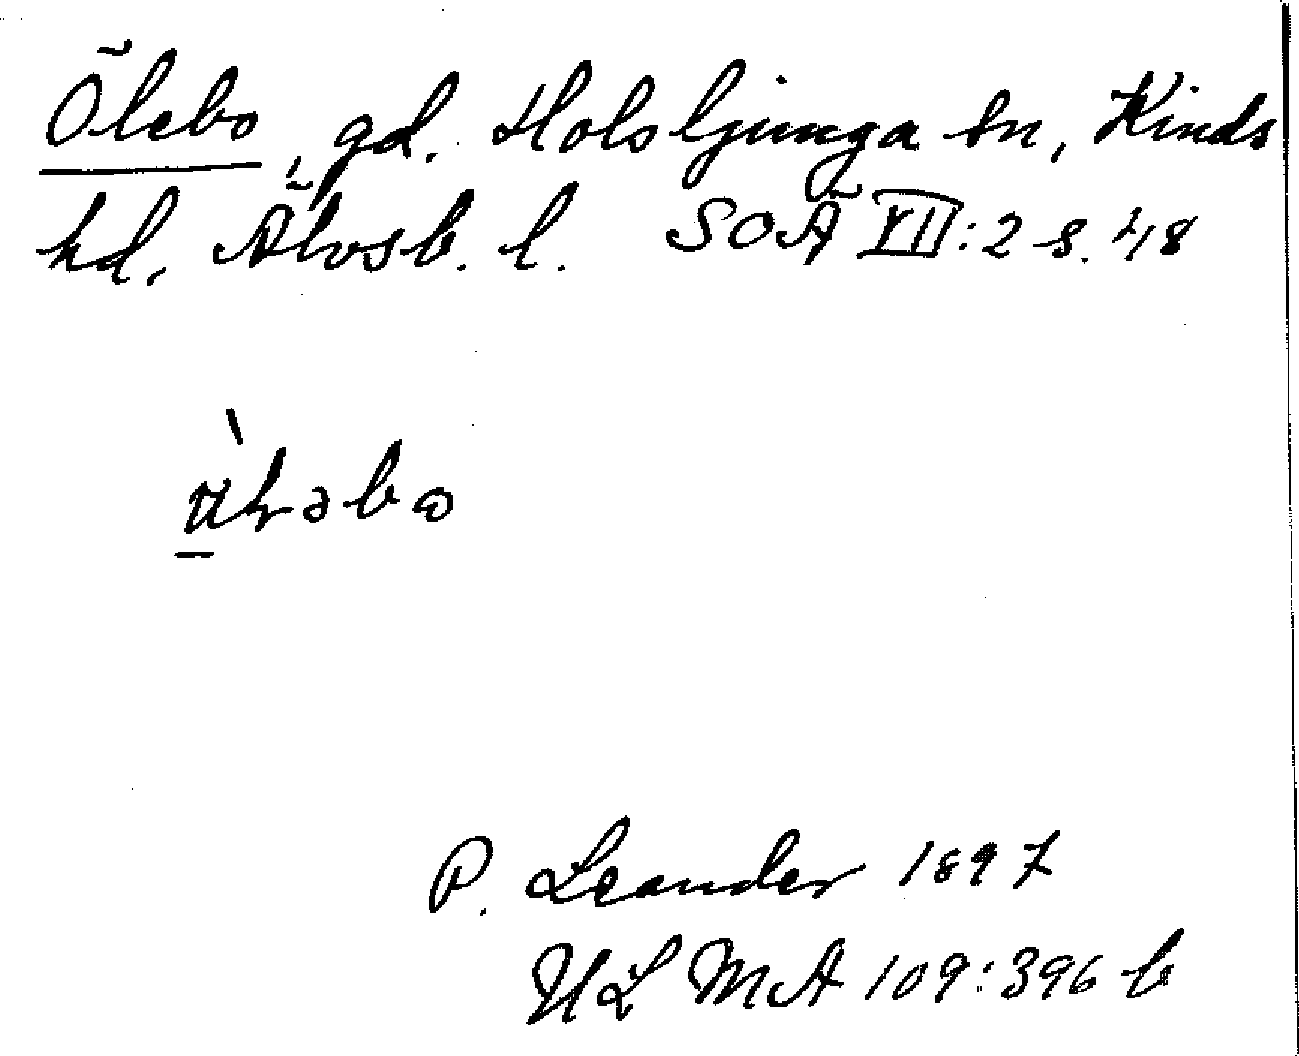 Ölebo, gd. Holsljunga sn, Kinds
hd. Älvsb. l. SOÄ VII:2 s. 48
P. Leander 1897
ULMA 109:396 b